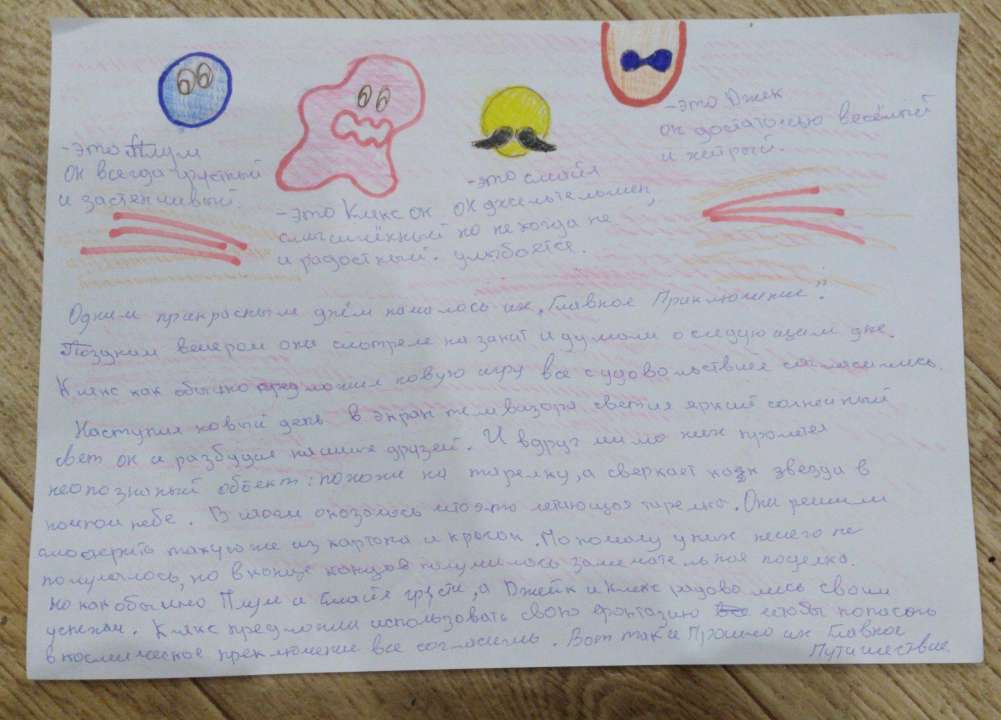 -это Плум
он всегда грустный
и застенчивый.
-это Клякс он
смышлённый
и радостный.
-это смайл
он джельтельмен,
но некогда не
улыбается.
-это Джек
он достаточно весёлый
и хитрый.
Одним прекрасным днём началось их "Главное Приключение".
Поздним вечером они смотрели на закат и думали о следующем дне.
Клякс как обычно предложил новую игру все с удовольствием согласились.
Наступил новый день в экран телевазора светил яркий солнечный
свет он и разбудил наших друзей. И вдруг мимо них пролетел
неопознаный объект: похожи на тарелку, а сверкает как звезда в
ночном небе. В итоге оказалось что это летающая тарелка. Они решили
смастерить такую же из картона и красок. По началу у них нечего не
получалось, но в конце концов получилось замечательная поделка.
Но как обычно Плум и Смайл грусти, а Джейк и Клякс радовались своим
успехам. Клякс предложил использовать свою фонтазию чтобы попасть
в космическое преключение все согласились. Вот так и Прошло их Главное
Путишествие